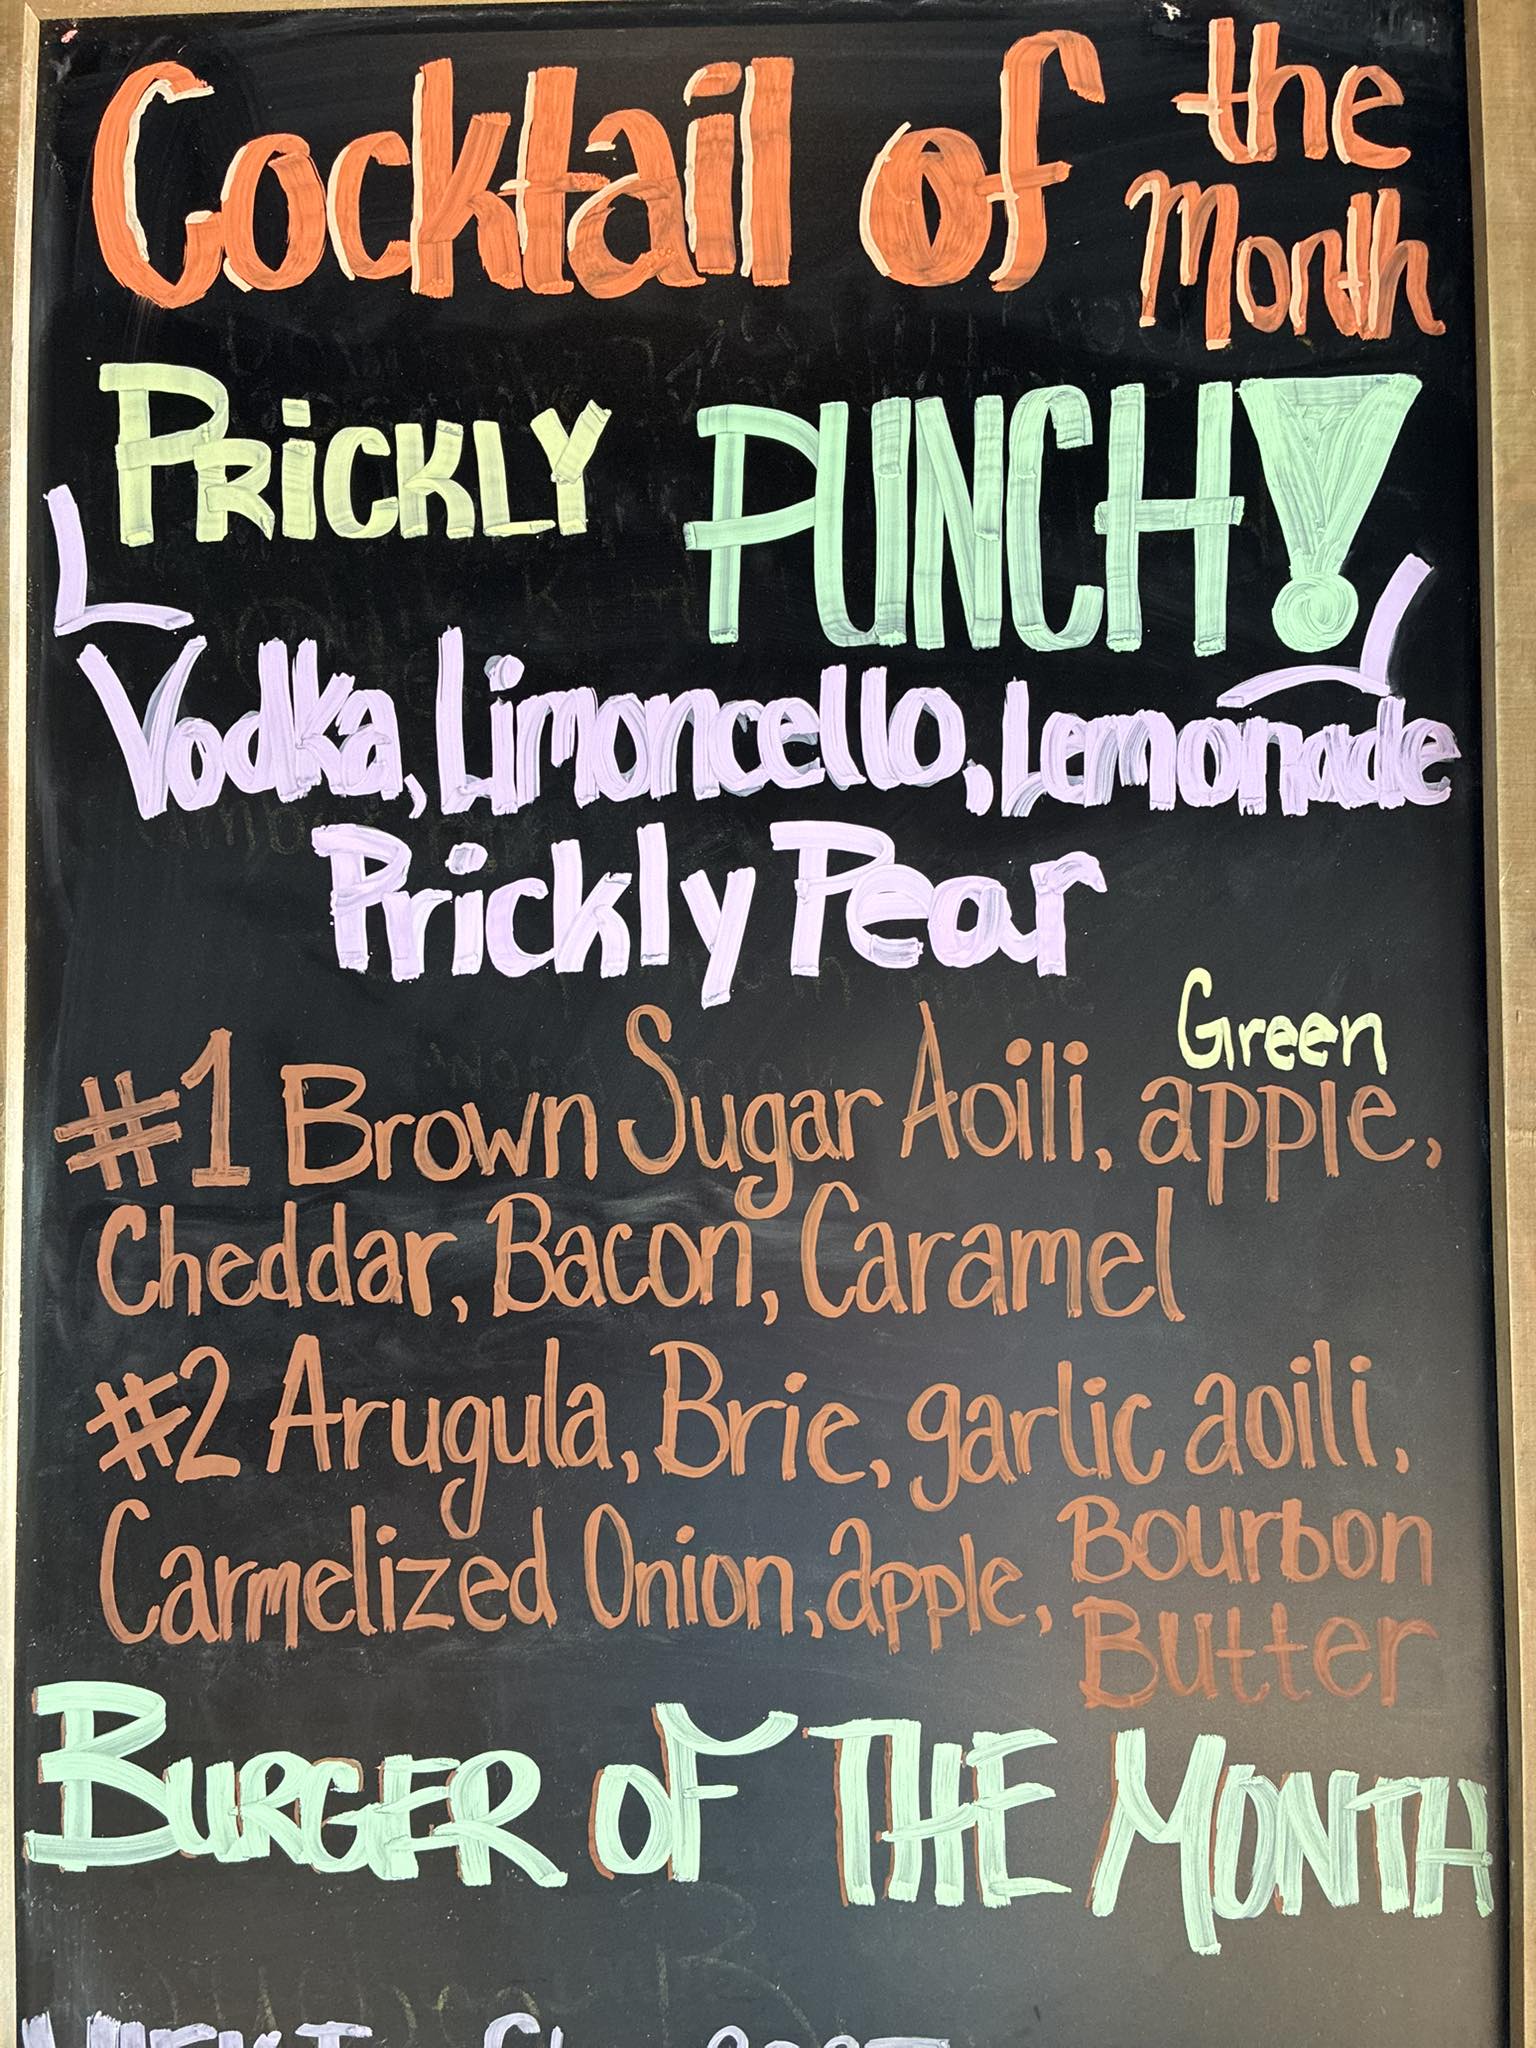 Cocktail of the Month
PRICKLY PUNCH!
Vodka, Limoncello, Lemonade
Prickly Pear
#1 Brown Sugar Aoili, Green apple,
Cheddar, Bacon, Caramel
#2 Arugula, Brie, garlic aoili,
Carmelized Onion, apple, Bourbon
Butter
BURGER OF THE MONTH